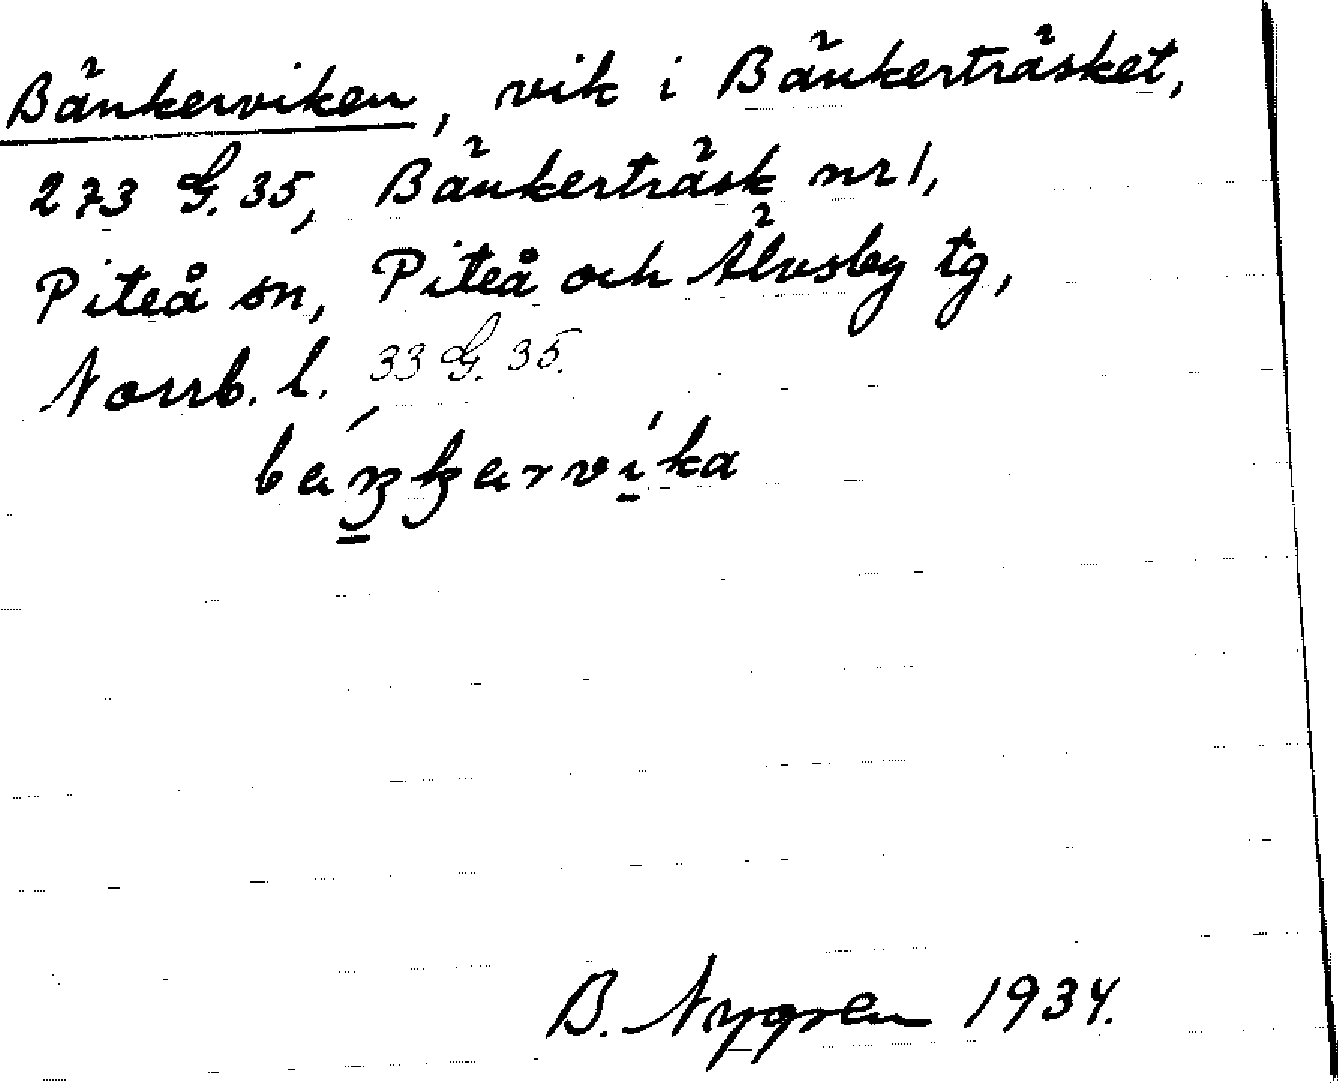 Bänkerviken, vik i Bänkerträsket,
273 G. 35, Bänkerträsk nr 1,
Piteå sn, Piteå och Älvsby tg,
Norrb. l. 33 G. 35.
B. Nygren 1934.